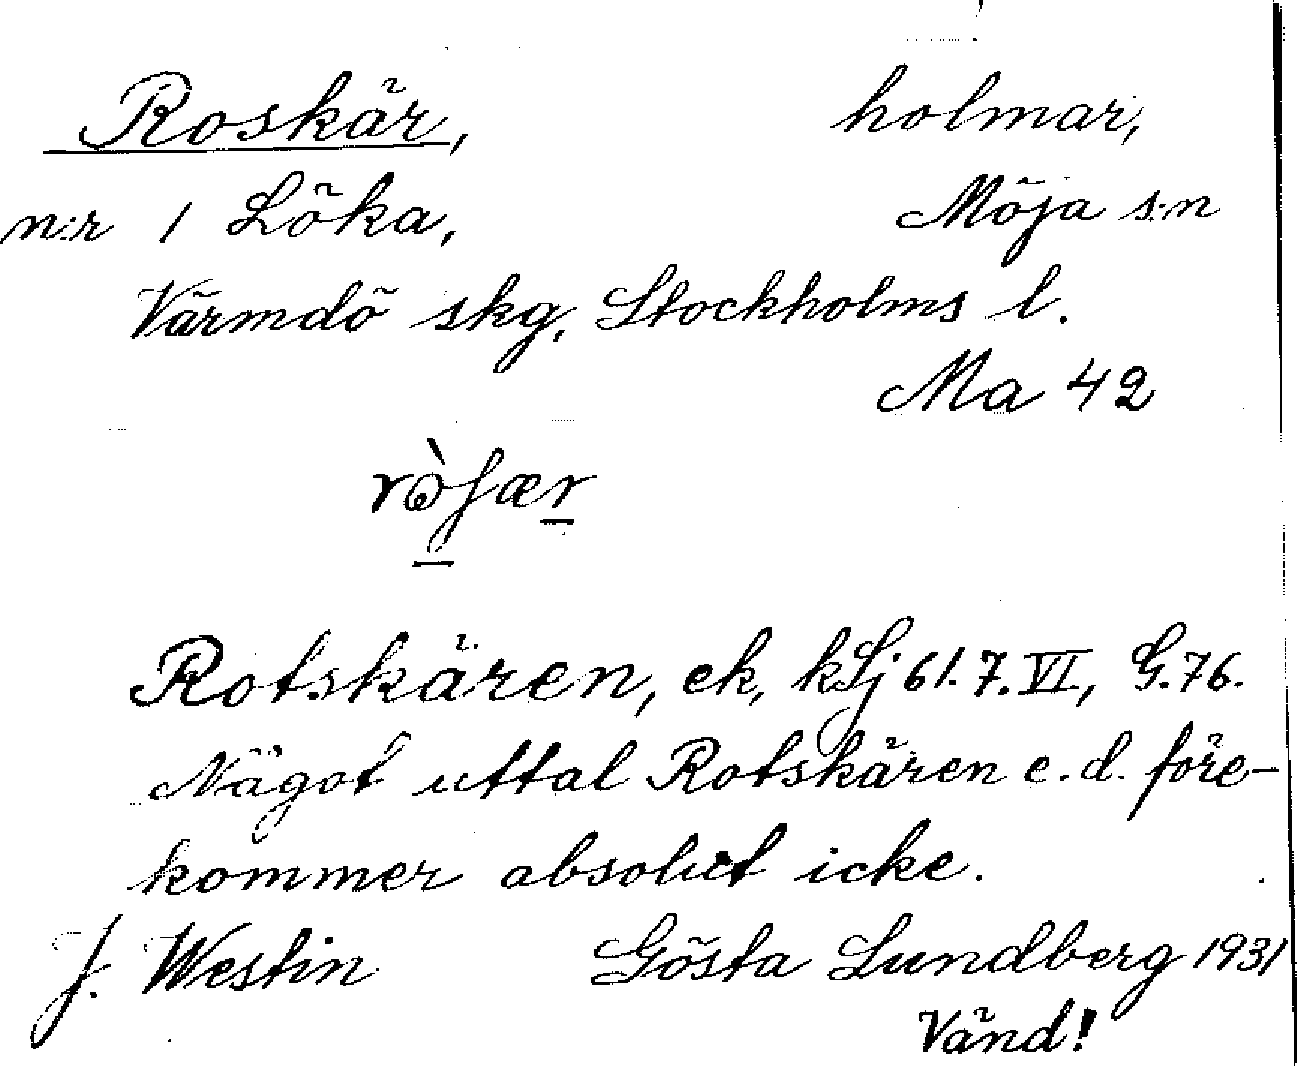 Roskär, holmar,
n:r 1 Löka, Möja s:n
Värmdö skg, Stockholms l.
Ma 42
Rotskären, ek, kLj 61.7.VI, G.76.
Något uttal Rotskären e.d. före-
kommer absolut icke.
J. Westin Gösta Lundberg 1931
Vänd!